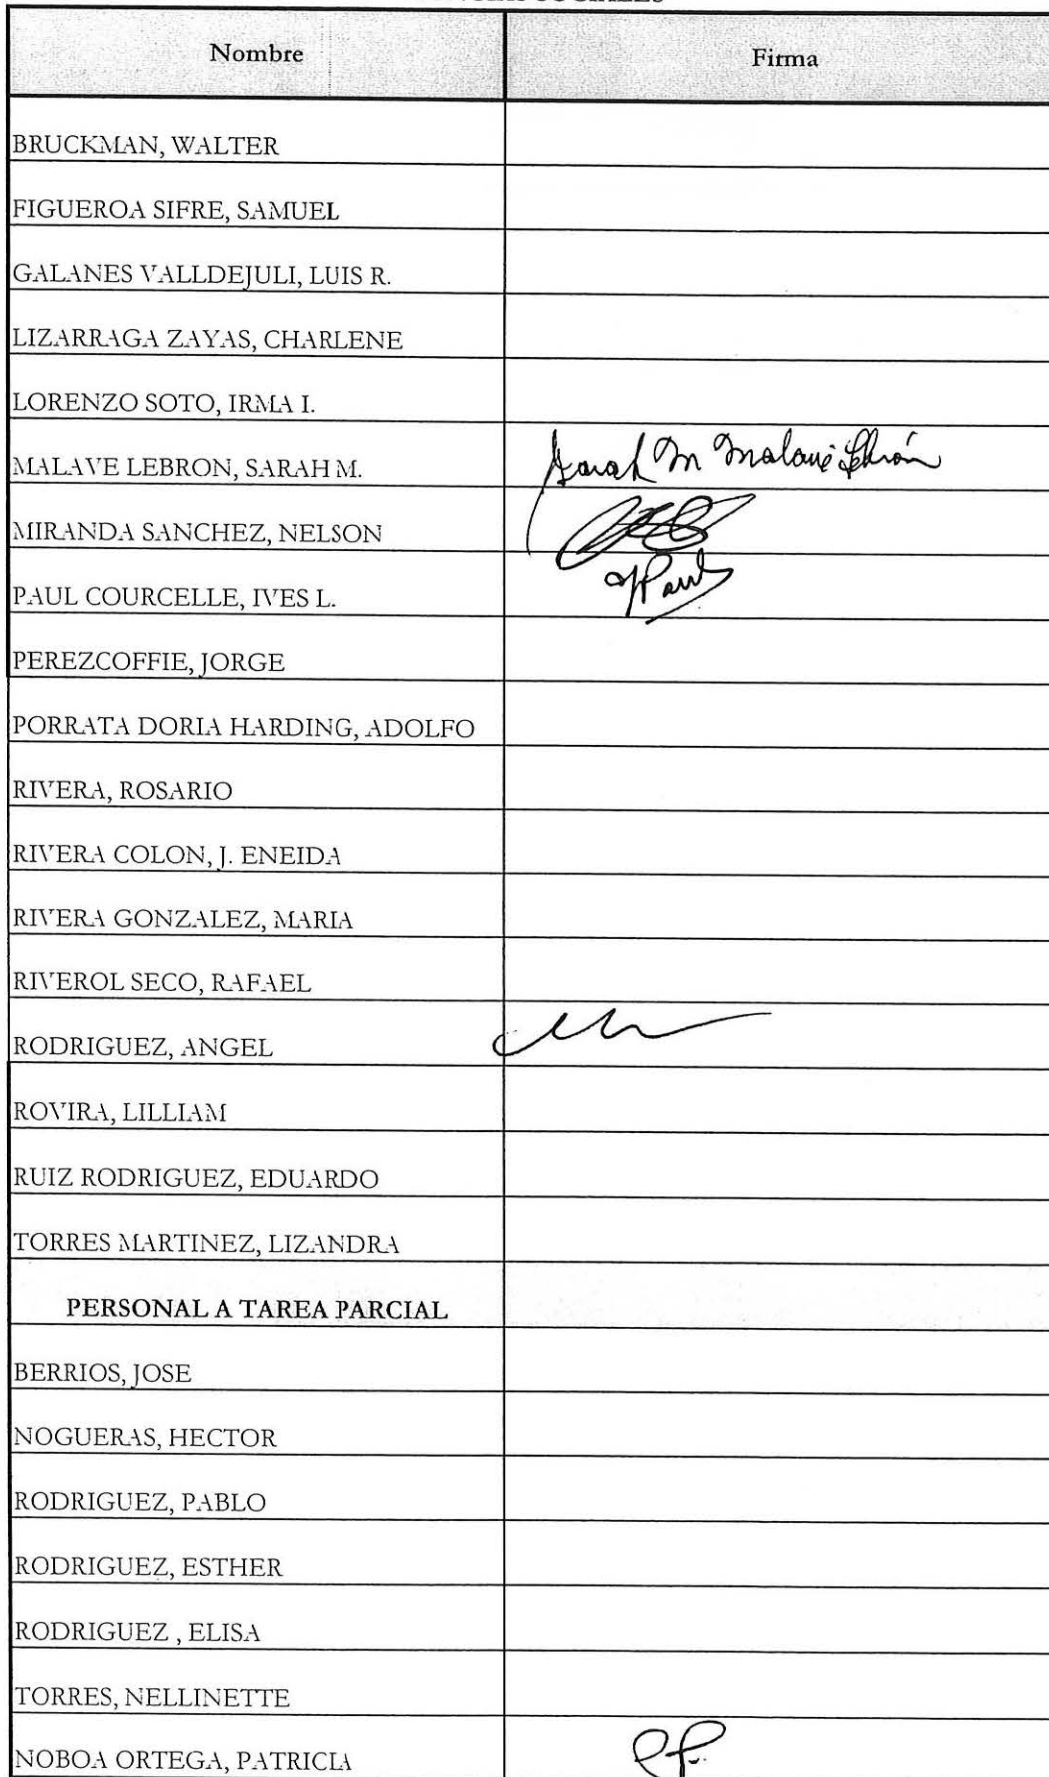 Nombre Firma
BRUCKMAN, WALTER
FIGUEROA SIFRE, SAMUEL
GALANES VALLDEJULI, LUIS R.
LIZARRAGA ZAYAS, CHARLENE
LORENZO SOTO, IRMA I.
MALAVE LEBRON, SARAH M. Sarah M Malavé Lebrón
MIRANDA SANCHEZ, NELSON
PAUL COURCELLE, IVES L. YPaul
PEREZCOFFIE, JORGE
PORRATA DORIA HARDING, ADOLFO
RIVERA, ROSARIO
RIVERA COLON, J. ENEIDA
RIVERA GONZALEZ, MARIA
RIVEROL SECO, RAFAEL
RODRIGUEZ, ANGEL
ROVIRA, LILLIAM
RUIZ RODRIGUEZ, EDUARDO
TORRES MARTINEZ, LIZANDRA
PERSONAL A TAREA PARCIAL
BERRIOS, JOSE
NOGUERAS, HECTOR
RODRIGUEZ, PABLO
RODRIGUEZ, ESTHER
RODRIGUEZ , ELISA
TORRES, NELLINETTE
NOBOA ORTEGA, PATRICIA